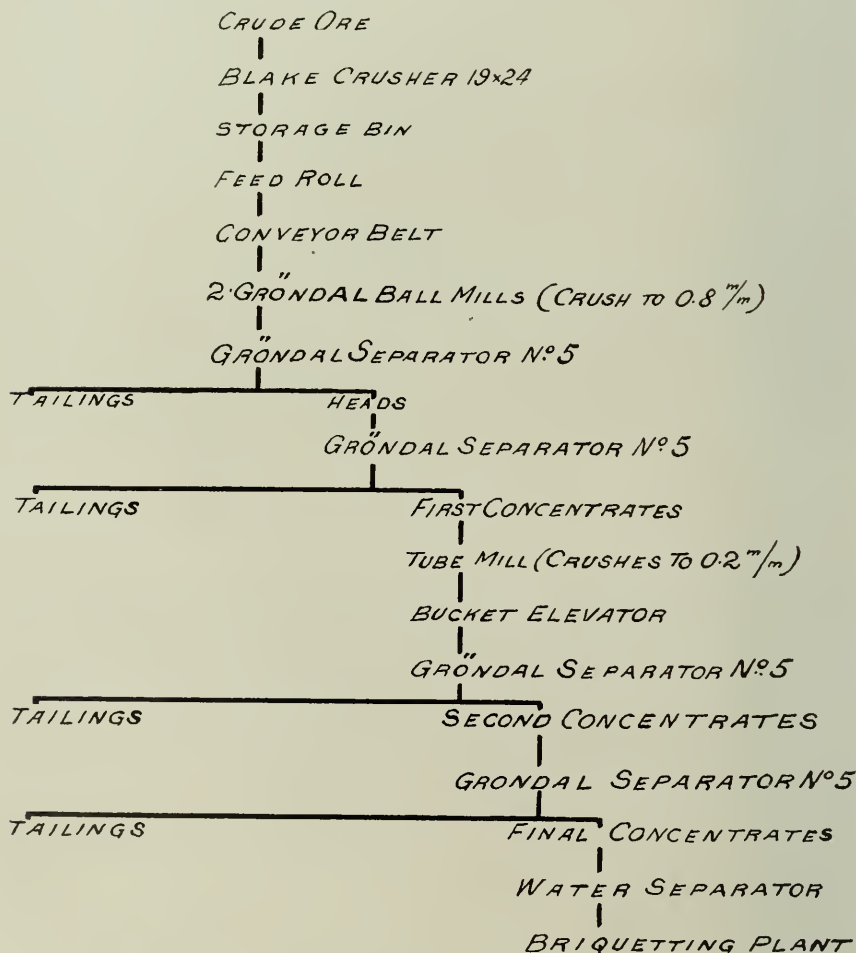 CRUDE ORE
BLAKE CRUSHER 19×24
STORAGE BIN
FEED ROLL
CONVEYOR BELT
2·GRÖNDAL BALL MILLS (CRUSH TO 0.8 m/m)
GRÖNDAL SEPARATOR Nº 5
TAILINGS HEADS
GRÖNDAL SEPARATOR Nº 5
TAILINGS FIRST CONCENTRATES
TUBE MILL (CRUSHES TO 0.2 m/m)
BUCKET ELEVATOR
GRÖNDAL SEPARATOR Nº 5
TAILINGS SECOND CONCENTRATES
GRONDAL SEPARATOR Nº 5
TAILINGS FINAL CONCENTRATES
WATER SEPARATOR
BRIQUETTING PLANT